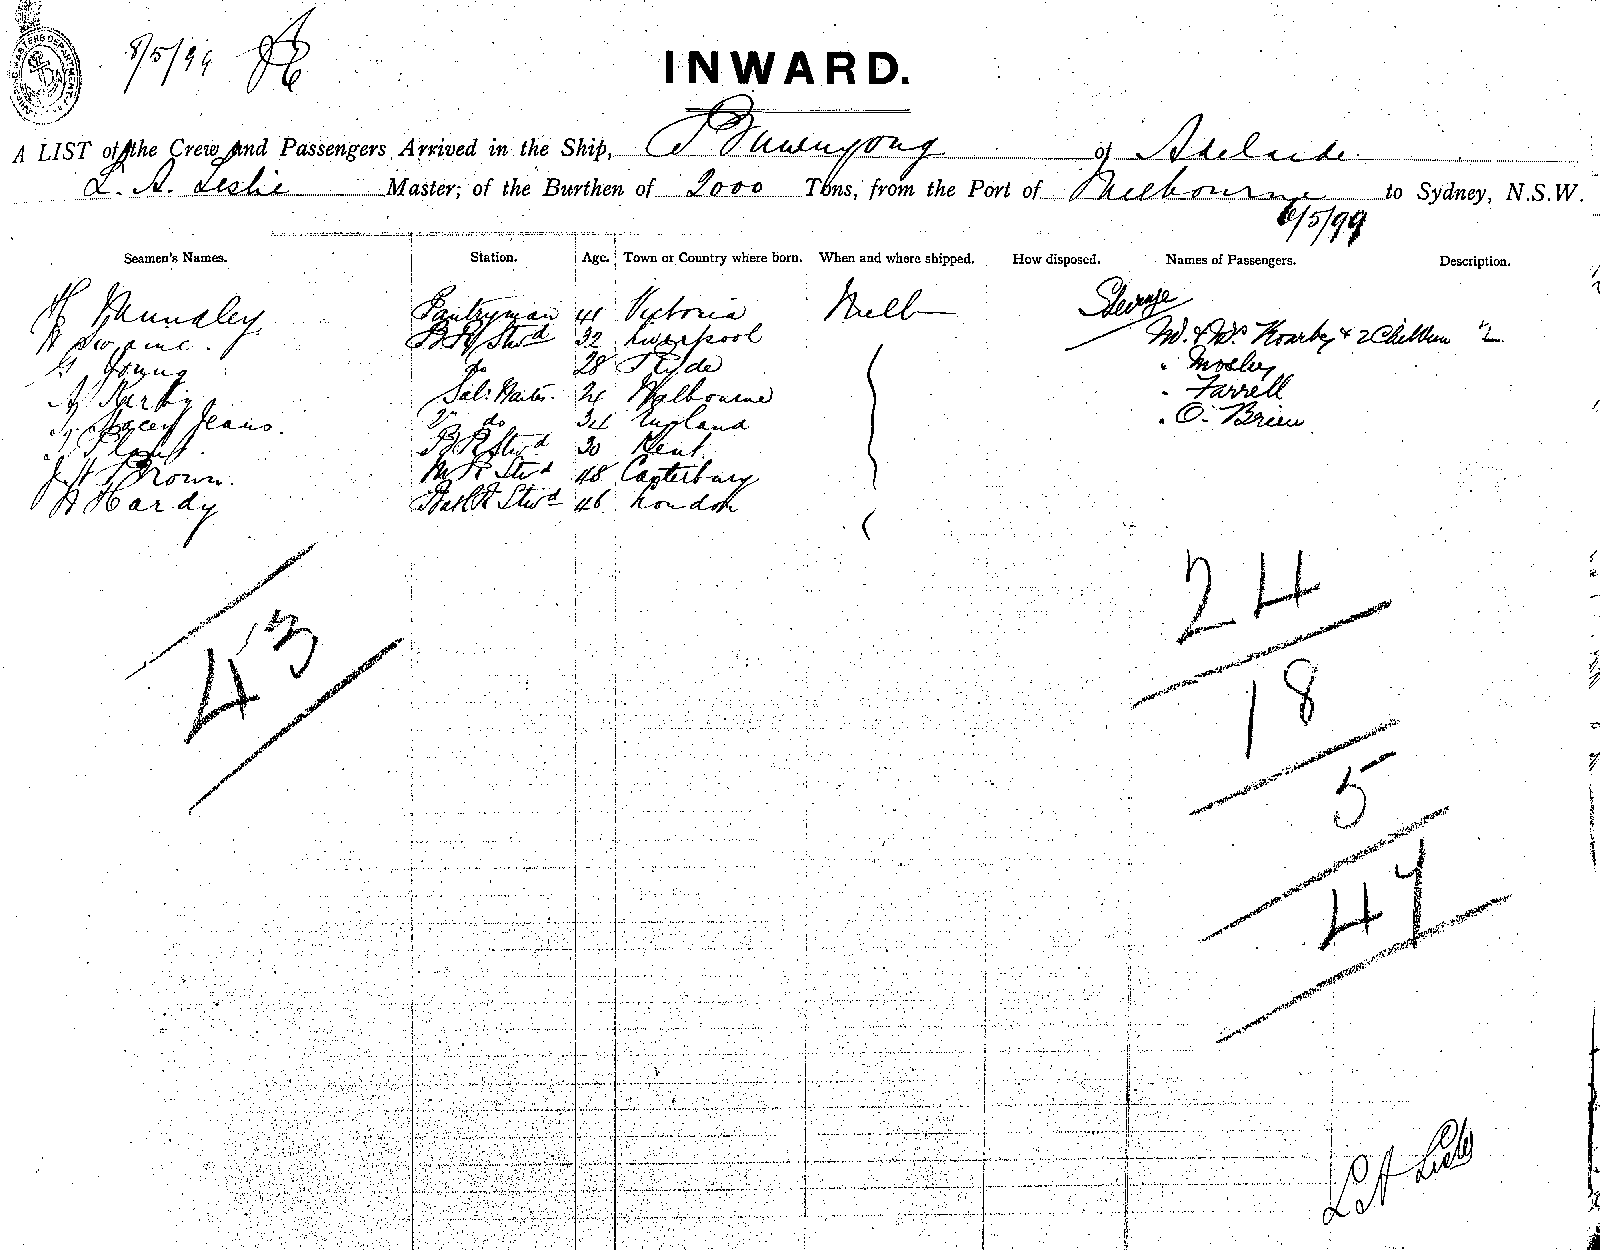 8/5/99
INWARD.
A LIST of the Crew and Passengers Arrived in the Ship, Buninyong of Adelaide
L. A. Leslie Master, of the Burthen of 2000 Tons, from the Port of Melbourne to Sydney, N.S.W.
6/5/99
Seamen's Names. Station. Age. Town or Country where born. When and where shipped. How disposed. Names of Passengers. Description.
H Mundley Pantryman 41 Victoria Melb Steerage
Swaine. B R Stwd 32 Liverpool Mr. & Mrs. & 2 Children 2
G Young do 28 Ryde " Mosley
A Kirby Sal: Waiter 24 Melbourne " Farrell
Stacey Jeans. do 34 England " O. Brien
B R Stwd 30 Kent
J H Brown. M R Stwd 48 Canterbury
Hardy Bath R Stwd 46 London
43
24
18
5
47
L A Leslie